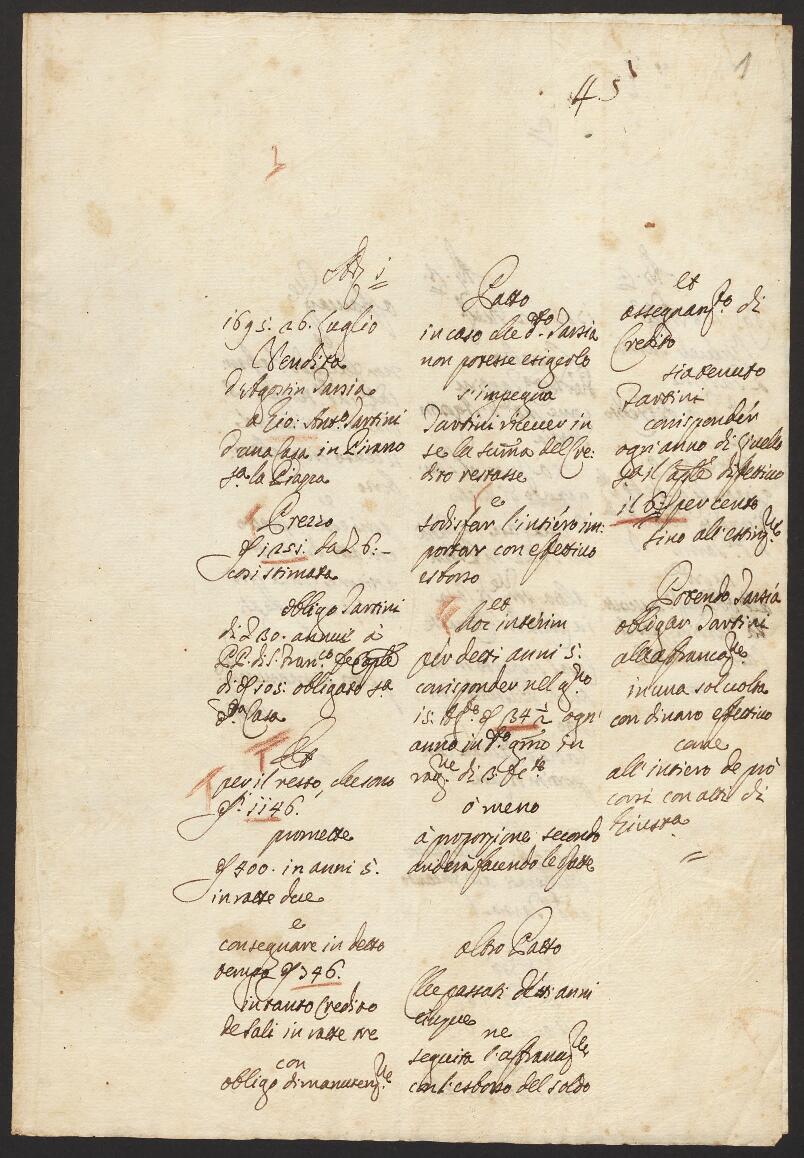 1
4. 5
1695. 26. Luglio
Vendita
d'Agostin Tarsia
a Gio: Ant.o Tartini
d'una Casa in Pirano
s.a la Piazza
Prezzo
1251.
così stimata
obligo Tartini
di 30. annui à
di 105. obligato s.a
d.a Casa
Et
per il resto, che sono
1146.
promette
in anni 5.
in ratte due
e
consegnare in detto
tempo 346.
in tanto Credito
de Sali in ratte tre
con
obligo di manuten.ne
Patto
in caso che d.o Tarsia
non potesse esigerlo
s'impegna
Tartini ricever in
se la summa del Cre:
dito restasse
e
sodisfar l'intiero im:
portar con effettivo
esborso
et
hoc interim
per detti anni 5.
corisponder nel g.no
34 à ogn'
anno in
rag.ne di
ò meno
à proporzione secondo
anderà facendo le ratte
altro Patto
Che passati detti anni
cinque
ne
seguita l'affranc.ne
con l'esborso del soldo
et
assegnam.to di
Credito
sia tenuto
Tartini
corisponder
ogn'anno di quello
il 6 per cento
sino all'estinz.ne
Potendo Tarsia
obligar Tartini
alla francaz.ne
in una sol volta
con dinaro effettivo
come
all'intiero de prò
corsi con atti di
Giusta